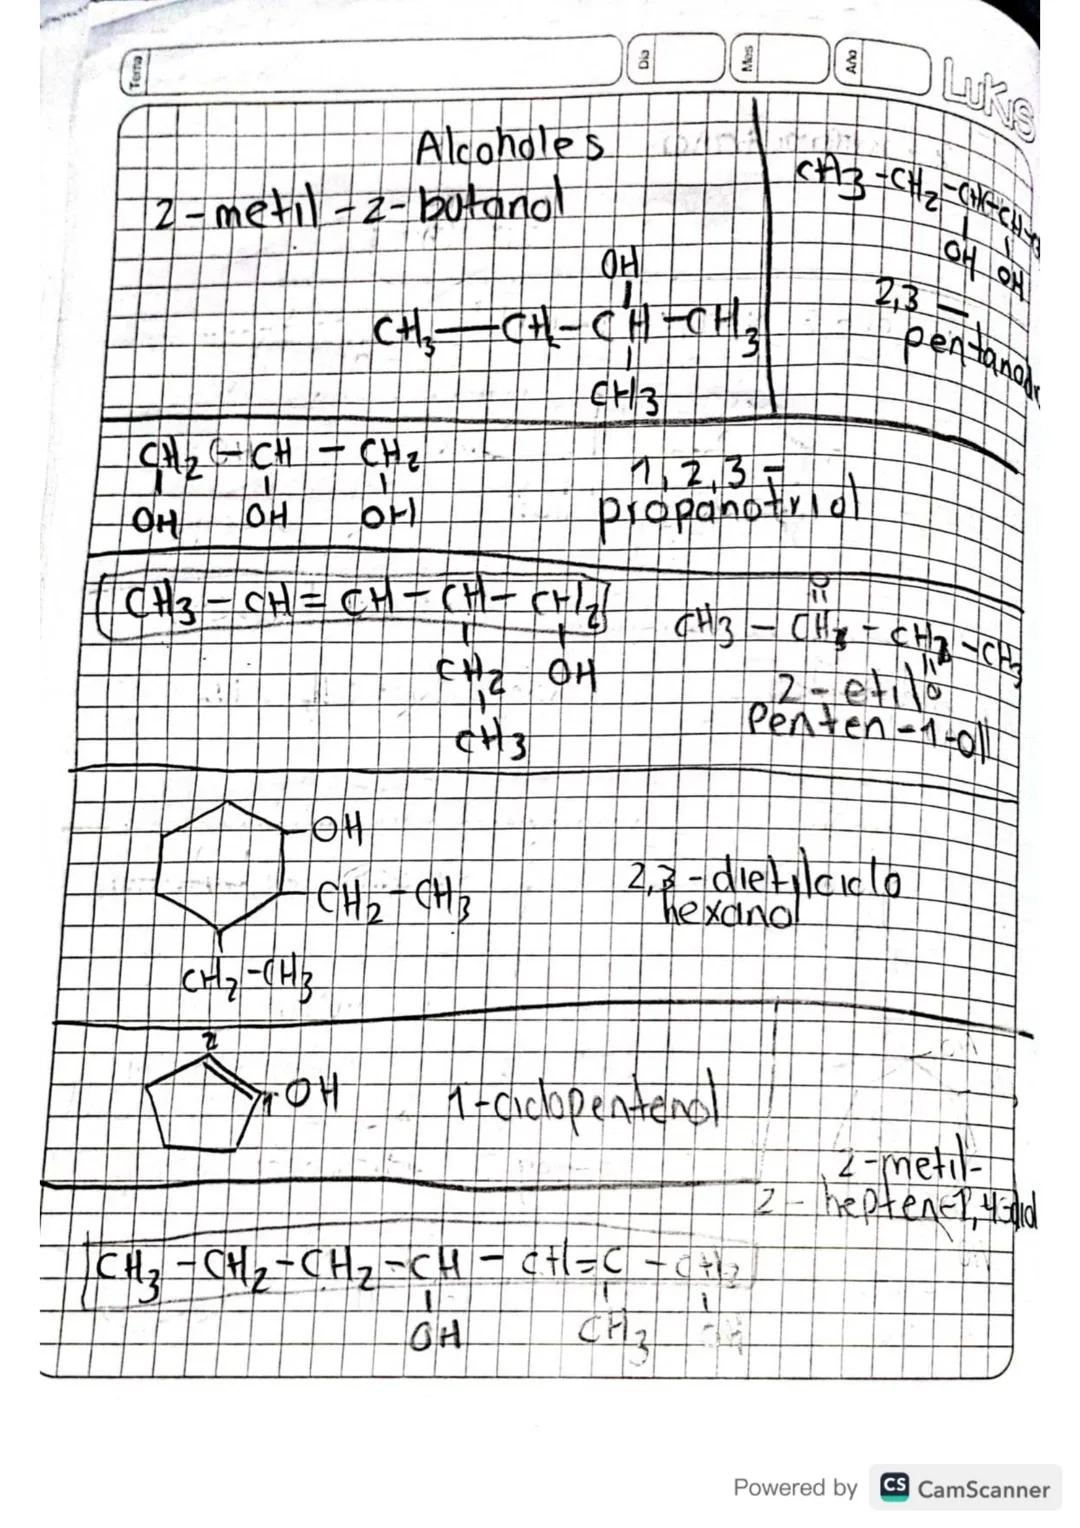 Tema
Dia
Mes
Año
LUKIS
Alcoholes
2-metil-2-butanol
OH
CH3—CH-CH-CH3
CH3
CH3-CH2-CH-CH-
OH OH
2,3-
CH2-CH-CH2
OH OH OH
1,2,3-
propanotriol
CH3-CH=CH-CH-CH2
CH2 OH
CH3
CH3-CH-CH-CH3
2-etil
Penten-1-ol
OH
CH2-CH3
CH2-CH3
2,3-dietilciclo
hexanol
2
1-OH
1-ciclopentenol
2-metil-
2-
CH3-CH2-CH2-CH-CH=C-CH2
OH CH3 OH
Powered by CS CamScanner